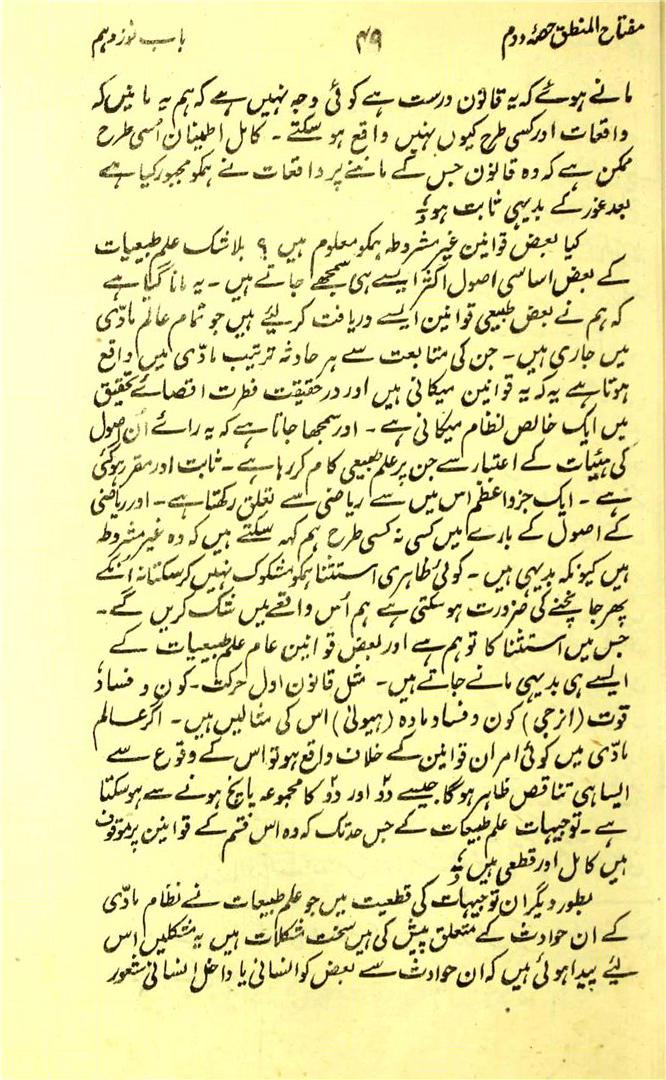 مفتاح المنطق حصۂ دوم ۴۹ باب نوزدہم
مانے ہوئے کہ یہ قانون درست ہے کوئی وجہ نہیں ہے کہ ہم یہ مانیں کہ
واقعات اور کسی طرح کیوں نہیں واقع ہو سکتے ۔ کامل اطینان اُسی طرح
ممکن ہے کہ وہ قانون جس کے ماننے پر واقعات نے ہمکو مجبور کیا ہے
بعد غور کے بدیہی ثابت ہو ؛
کیا بعض قوانین غیر مشروطہ ہمکو معلوم ہیں ؟ بلاشک علم طبیعیات
کے بعض اساسی اصول اکثر ایسے ہی سمجھے جاتے ہیں ۔ یہ مانا گیا ہے
کہ ہم نے بعض طبیعی قوانین ایسے دریافت کر لیئے ہیں جو تمام عالم مادّی
میں جاری ہیں ۔ جن کی متابعت سے ہر حادثہ ترتیب مادّی میں واقع
ہوتا ہے یہ کہ یہ قوانین میکانی ہیں اور درحقیقت فطرت اقتصائے تحقیق
میں ایک خالص نظام میکانی ہے ۔ اور سمجھا جاتا ہے کہ یہ رائے اُن اصول
کی ہئیات کے اعتبار سے جن پر علم طبیعی کام کر رہا ہے ۔ ثابت اور مقرر ہو گئی
ہے ۔ ایک جزو اعظم اس میں سے ریاضی سے تعلق رکھتا ہے ۔ اور ریاضی
کے اصول کے بارے میں کسی نہ کسی طرح ہم کہہ سکتے ہیں کہ وہ غیر مشروطہ
ہیں کیونکہ بدیہی ہیں ۔ کوئی ظاہری استثنا ہمکو مشکوک نہیں کر سکتا نہ انکے
پھر جانچنے کی ضرورت ہو سکتی ہے ہم اُس واقعے میں شک کریں گے ۔
جس میں استثنا کا توہم ہے اور بعض قوانین عام علم طبیعیات کے
ایسے ہی بدیہی مانے جاتے ہیں ۔ مثل قانون اول حرکت ۔ کون و فساد
قوت (انرجی) کون و فساد مادہ (ہیولیٰ) اس کی مثالیں ہیں ۔ اگر عالم
مادّی میں کوئی امر ان قوانین کے خلاف واقع ہو تو اس کے وقوع سے
ایسا ہی تناقص ظاہر ہوگا جیسے دو اور دو کا مجموعہ پانچ ہونے سے ہو سکتا
ہے ۔ توجیہات علم طبیعات کے جس حد تک کہ وہ اس قسم کے قوانین پر موقوف
ہیں کامل اور قطعی ہیں ؛
بطور دیگر ان توجیہات کی قطعیت میں جو علم طبیعات نے نظام مادّی
کے ان حوادث کے متعلق پیش کی ہیں سخت مشکلات ہیں یہ مشکلیں اس
لیئے پیدا ہوئی ہیں کہ ان حوادث سے بعض کو انسانی یا داخل انسانی شعور